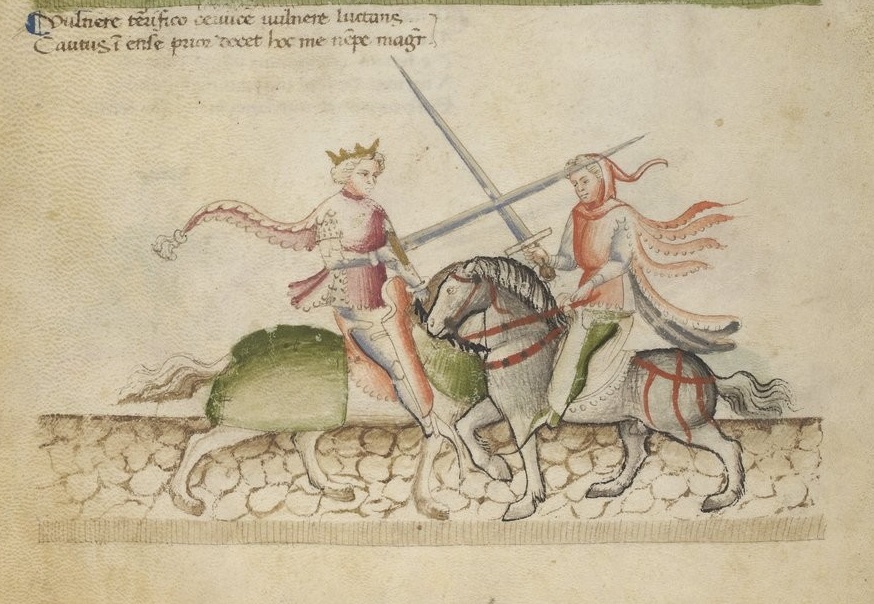 Vulnere tērifico ceruice uulnere luctans
Cautus ī ense prior docet hoc me nēpe magr̄